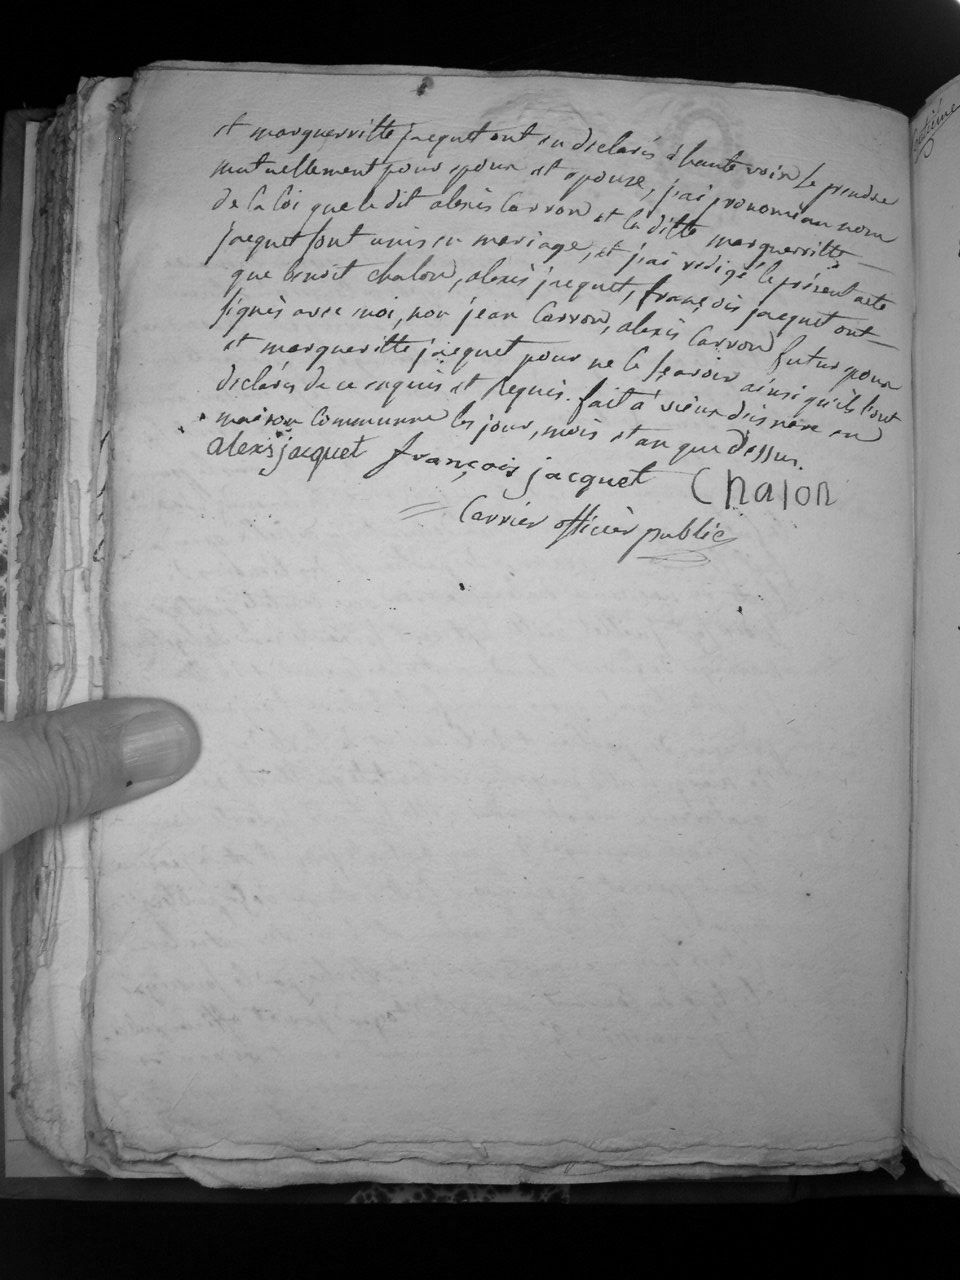 et marguerritte jacquet ont eu declarés à haute voix se prendre
mutuellement pour epoux et epouse, j'ai prononcé au nom
de la loi que le dit alexis Carron et la ditte marguerritte
jacquet sont unis en mariage, et j'ai redigé le présent acte
que benoit chalon, alexis jacquet, françois jacquet ont
signès avec moi, non jean Carron, alexis Carron futur epoux
et margueritte jacquet pour ne le sçavoir ainsi qu'ils l'ont
declarés de ce enquis et Requis. fait a vieux d'isenave en
maison Commune les jour, mois et an que dessus.
alexis jacquet françois jacquet Chalon
Carrier officier public